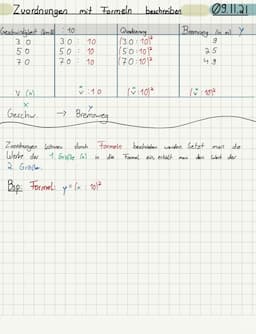 Zuordnungen mit Formeln beschreiben 09.11.21
Geschwindigkeit : 10 Quadrierung Bremsweg (in m) y
30 30 : 10 (30 : 10)² 9
50 50 : 10 (50 : 10)² 25
70 70 : 10 (70 : 10)² 49
v (x) v : 10 (v : 10)² (v : 10)²
x y
Geschw. → Bremsweg
Zuordnungen können durch Formeln beschrieben werden. Setzt man die
Werte der 1. Größe (x) in die Formel ein, erhält man den Wert der
2. Größe.
Bsp: Formel: y = (x : 10)²